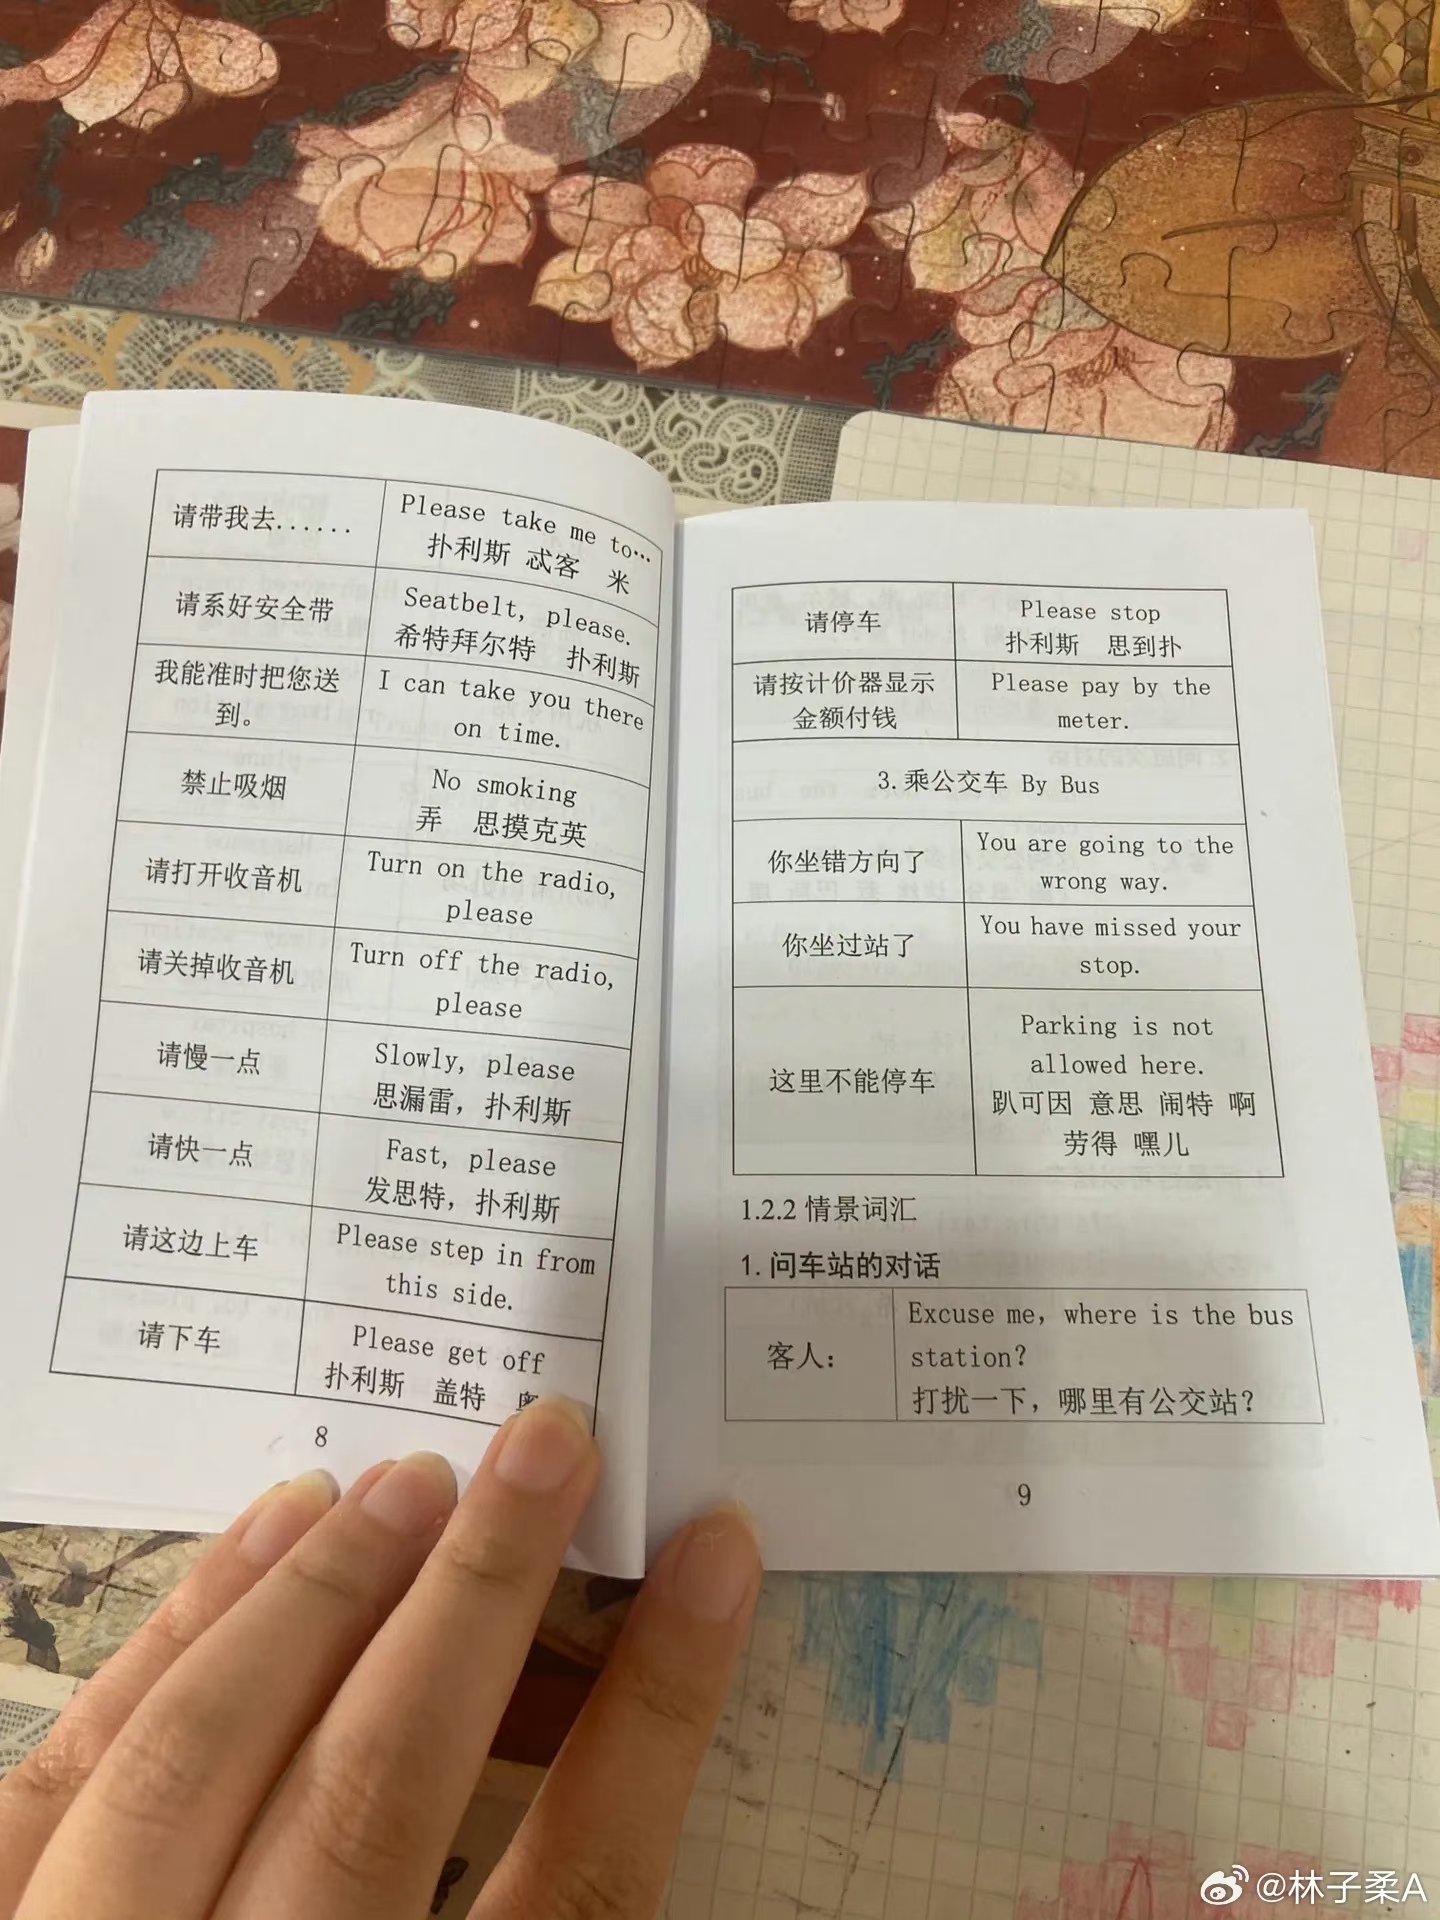 请带我去......
Please take me to…
扑利斯 忒客 米
请系好安全带
Seatbelt, please.
希特拜尔特 扑利斯
我能准时把您送
到。
I can take you there
on time.
禁止吸烟
No smoking
弄 思摸克英
请打开收音机
Turn on the radio,
please
请关掉收音机
Turn off the radio,
please
请慢一点
Slowly, please
思漏雷，扑利斯
请快一点
Fast, please
发思特，扑利斯
请这边上车
Please step in from
this side.
请下车
Please get off
扑利斯 盖特
8
请停车
Please stop
扑利斯 思到扑
请按计价器显示
金额付钱
Please pay by the
meter.
3.乘公交车 By Bus
你坐错方向了
You are going to the
wrong way.
你坐过站了
You have missed your
stop.
这里不能停车
Parking is not
allowed here.
趴可因 意思 闹特 啊
劳得 嘿儿
1.2.2 情景词汇
1. 问车站的对话
客人：
Excuse me, where is the bus
station?
打扰一下，哪里有公交站？
9
@林子柔A